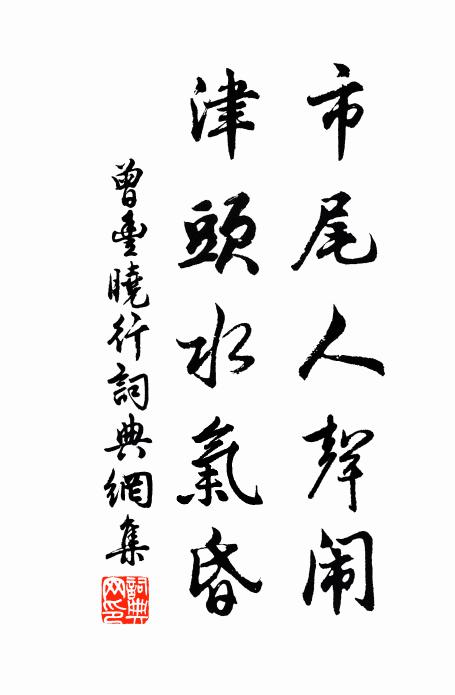 市尾人聲闹
津頭水氣昏
曾豐曉行詞典網集
詞典网印